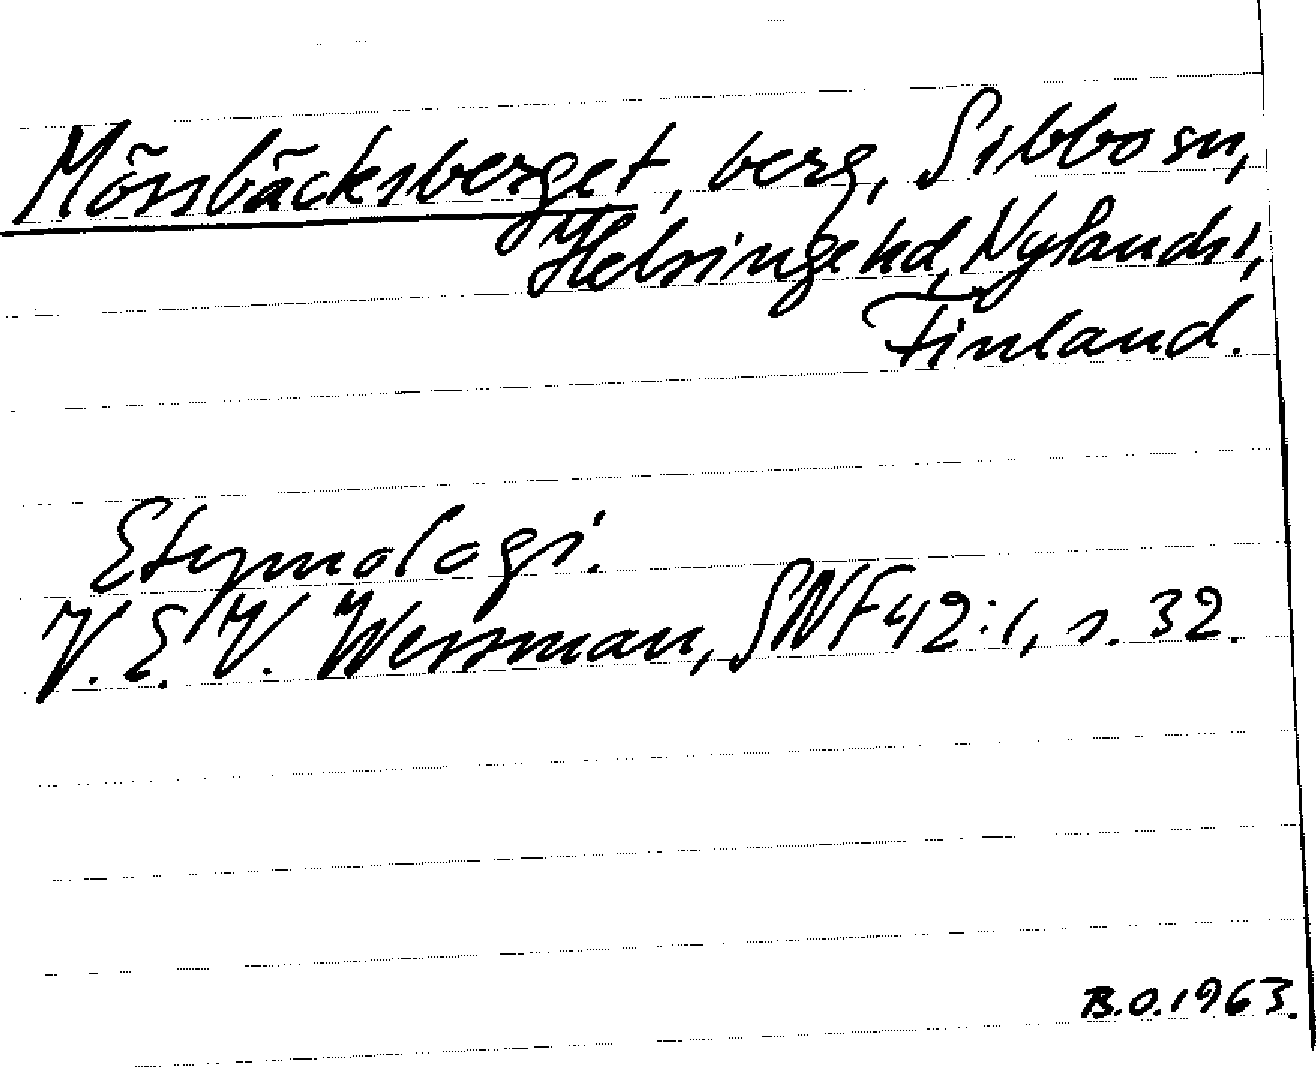 Mössbäcksberget, berg, Sibbo sn,
Helsinge hd, Nylands l,
Finland.
Etymologi.
V. E. V. Wessman, SNF 42:1, s. 32.
B.O. 1963.